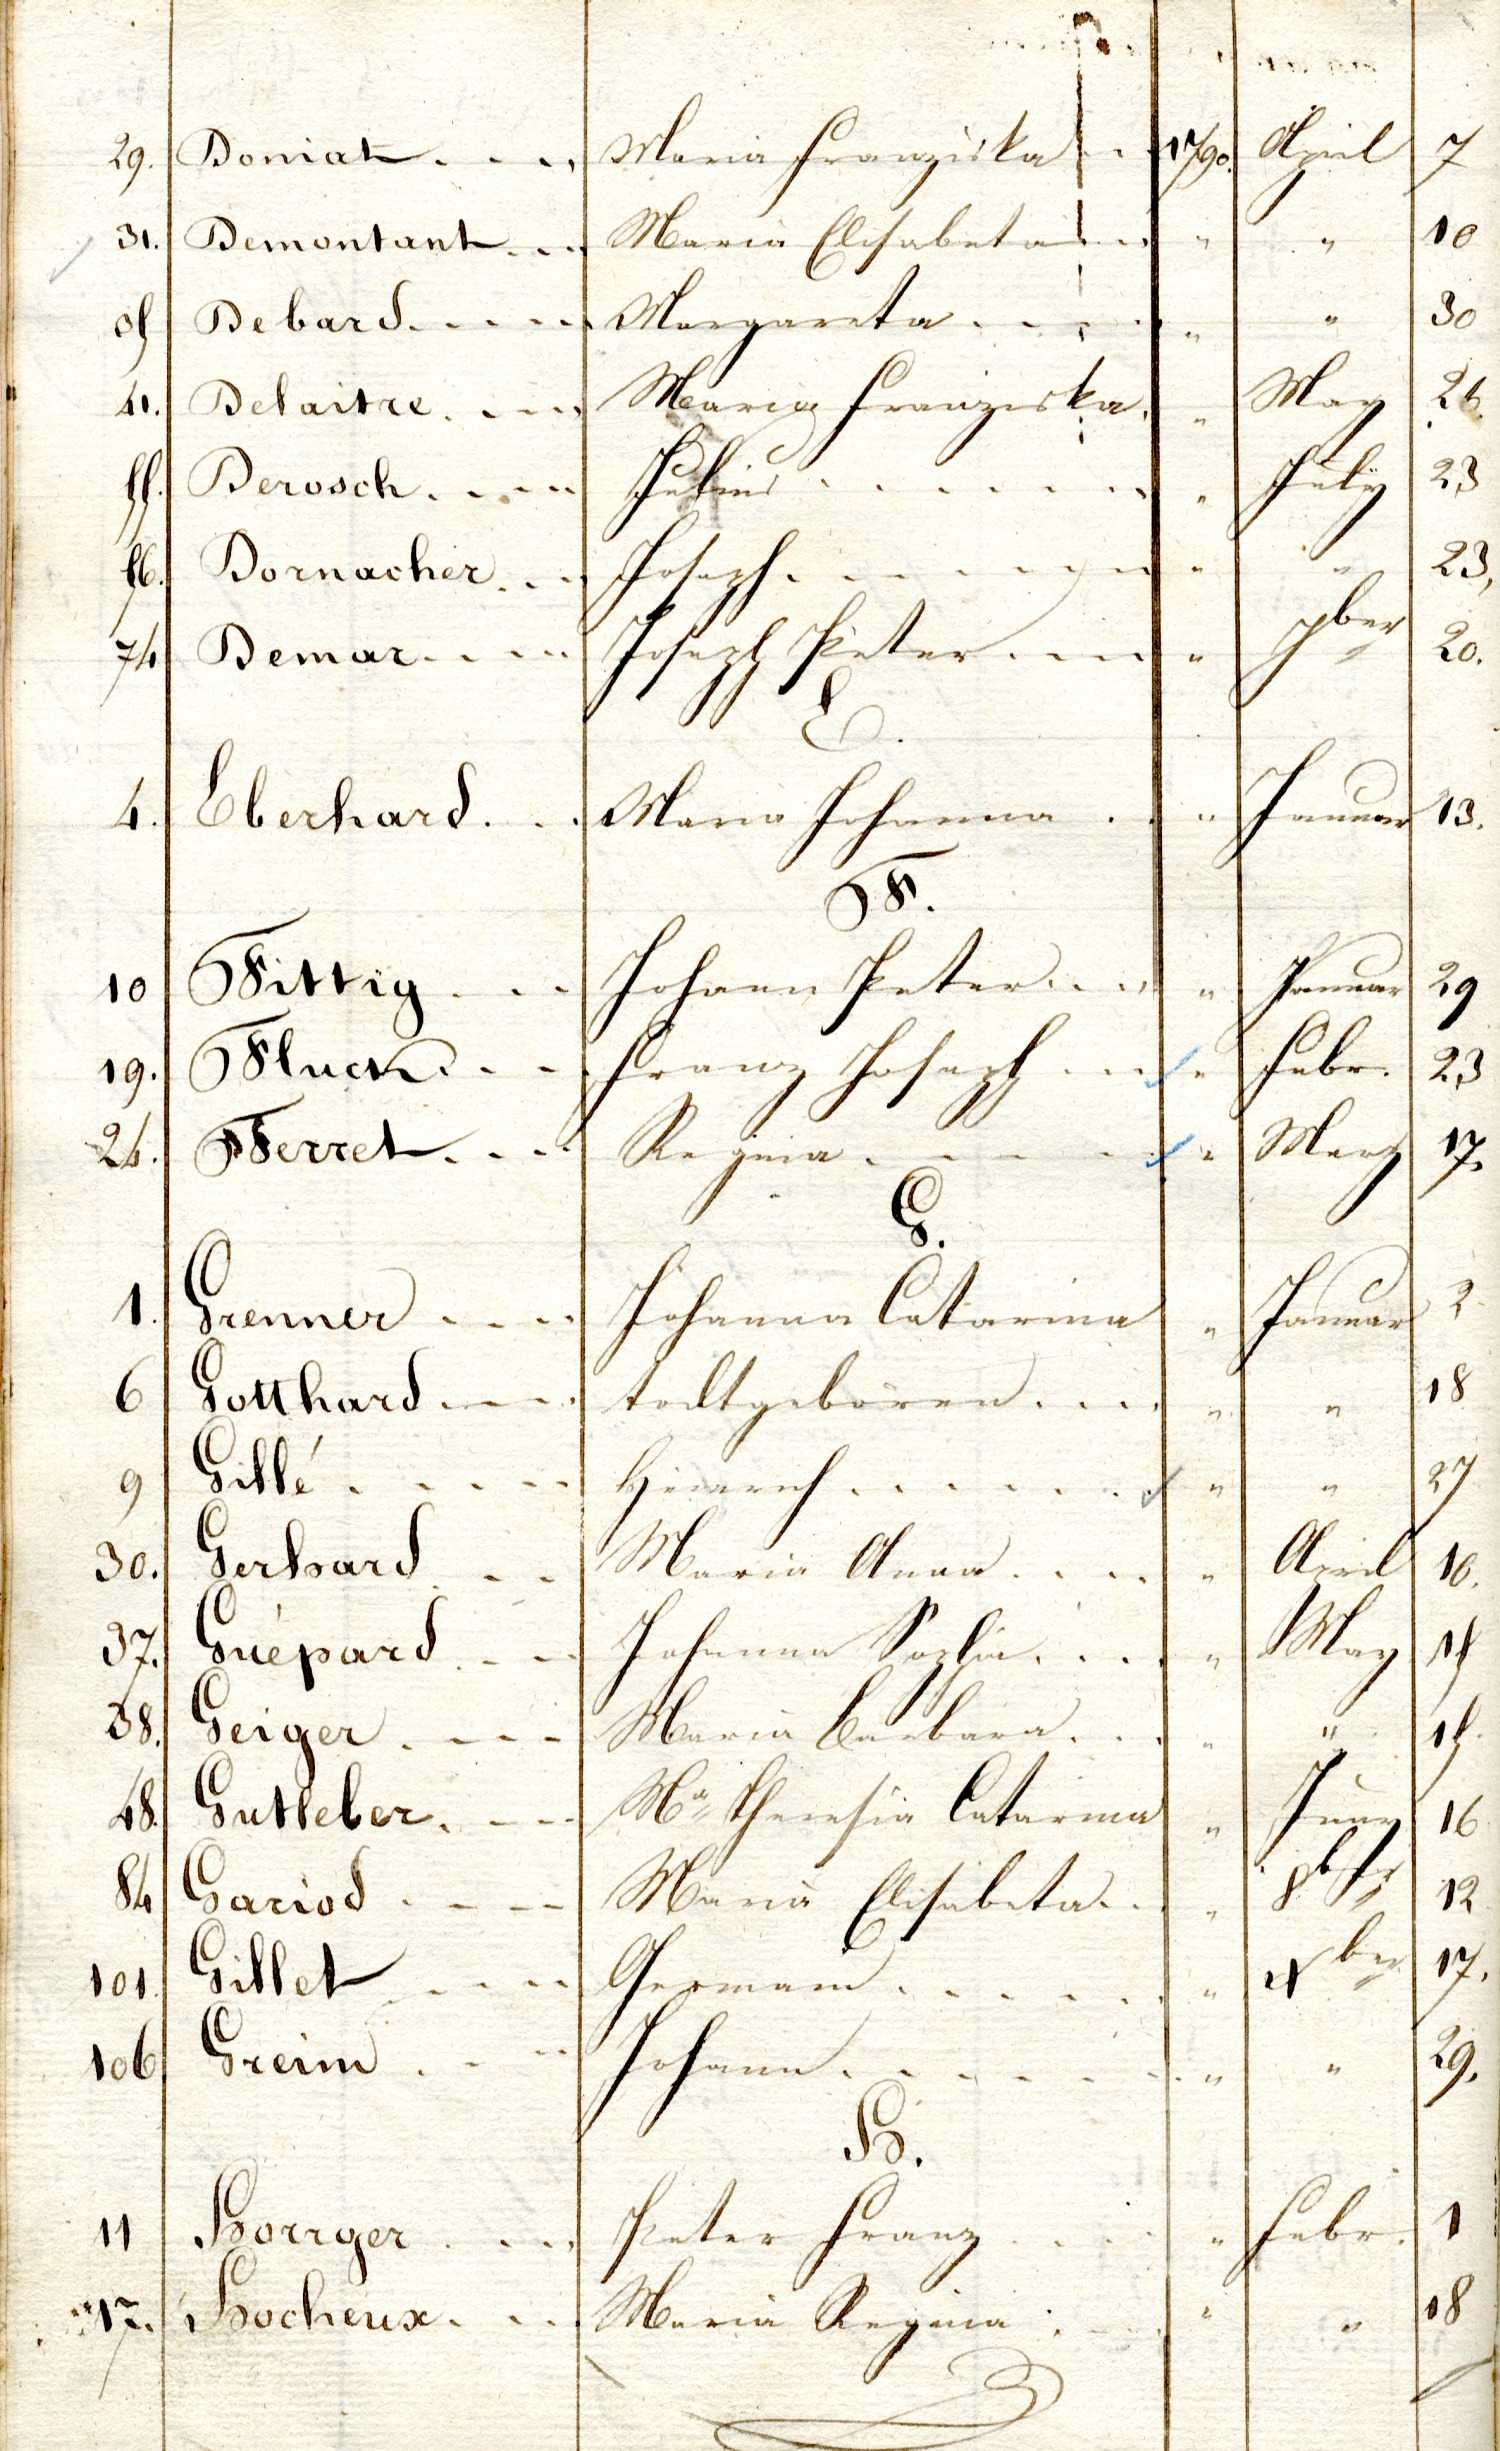 29. Doniat Maria Franziska 1790. April 7
31. Demontant Maria Elisabeta " " 10
35 Debard Margareta " " 30
41. Delaitre Maria Franziska " May 24.
55. Derosch Julius " July 23
56. Dornacher Joseph " " 23,
74 Demar Joseph Peter " 7ber 20.
E.
4. Eberhard Maria Johanna " Januar 13.
F.
10 Fittig Johann Peter " Januar 29
19. Fluck Franz Joseph " Febr. 23
24. Ferret Regina " Merz 17.
G.
1. Grenner Johanna Catarina " Januar 2
6 Gotthard todtgeboren " " 18
9 Gillé Heinrich " " 27
30. Gerhard Maria Anna " April 10.
37. Guépard Johanna Sophia " May 15
38. Geiger Maria Barbara " " 15.
48. Gutleber Ma Theresia Catarina " Juny 16
84 Gariod Maria Elisabeta " 8ber 12
101. Gillet Germain " xber 17.
106 Greim Johann " " 29.
H.
11 Horrger Peter Franz " Febr. 1
17. Hocheux Maria Regina " " 18